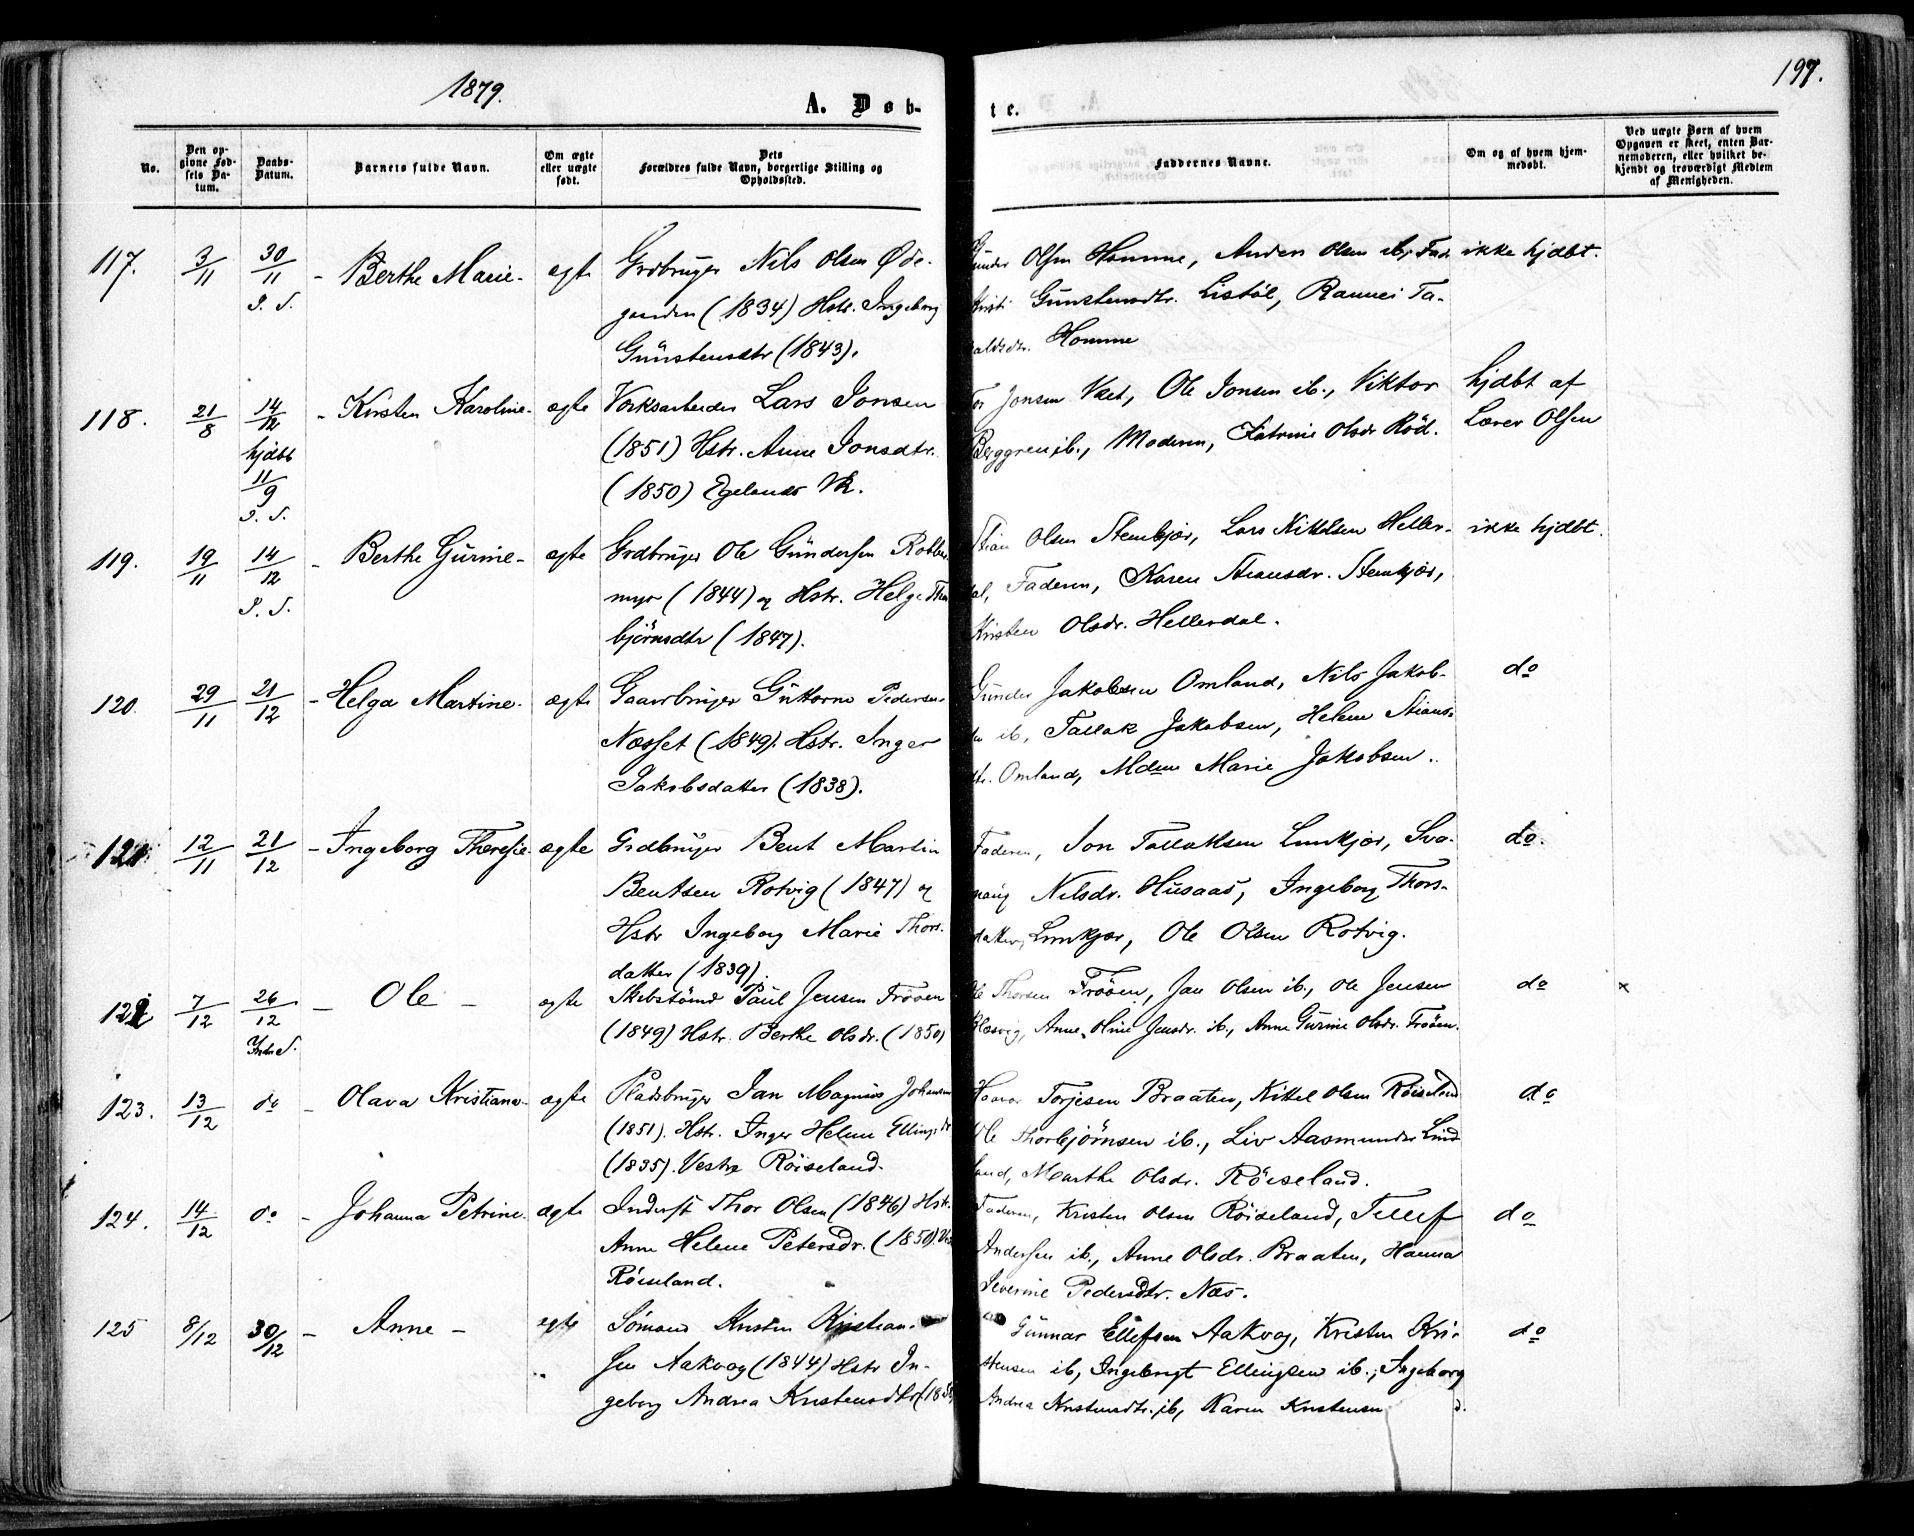 1879.
197.
A. Døb-
te.
No.
Den op-
givne Fød-
sels Da-
tum.
Daabs-
Datum.
Barnets fulde Navn.
Om ægte
eller uægte
født.
Dets
Forældres fulde Navn, borgerlige Stilling og
Opholdssted.
Faddernes Navne.
Om og af hvem hjem-
medøbt.
Ved uægte Børn af hvem
Opgaven er skeet, enten Bar-
nemoderen, eller hvilket be-
kjendt og troværdigt Medlem
af Menigheden.
117. 3/11 30/11 - Berthe Marie - ægte Grdbruger Nils Olsen Øde-
gaarden (1834) Hstr. Ingeborg
Gunstensdtr (1843).
Gunder Olsen Homme, Anders Olsen ib., Fad. ikke hjdbt.
Kristi Gunstensdtr. Listøl, Rannei Ta-
raldsdtr. Homme
118. 21/8 14/12 - Kirsten Karoline - ægte Værksarbeider Lars Jonsen
hjdbt
11/9
(1851) Hstr. Anne Jonsdtr.
(1850) Egelands Vk.
Tor Jonsen Vket, Ole Jonsen ib., Viktor hjdbt af
Berggren ib., Moderen, Katrine Olsdr Rød. Lærer Olsen
119. 19/11 14/12 - Berthe Gurine - ægte Grdbruger Ole Gundersen Robber-
myr (1844) og Hstr. Helge Thor-
bjørnsdtr (1847).
Stian Olsen Stemkjær, Lars Kittelsen Heller- ikke hjdbt.
dal, Faderen, Karen Stiansdr. Stemkjær,
Kristen Olsdr. Hellerdal.
120. 29/11 21/12 - Helga Martine - ægte Gaardbruger Guttorm Pedersen
Næsset (1849). Hstr. Inger
Jakobsdatter (1838).
Gunder Jakobsen Omland, Nils Jakob- do
sen ib, Tallak Jakobsen, Helene Stians-
dtr. Omland, Mdme Marie Jakobsen.
121 12/11 21/12 - Ingeborg Theresie - ægte Grdbruger Bent Martin
Bentsen Rotvig (1847) og
Hstr Ingeborg Marie Thors-
datter (1839).
Faderen, Jon Tallaksen Lunkjær, Sva- do.
naug Nilsdr. Husaas, Ingeborg Thors-
datter, Lunkjær, Ole Olsen Rotvig.
122 7/12 26/12 - Ole - ægte Skibstømd Paul Jensen Frøøen
(1849) Hstr. Berthe Olsdr. (1850)
Ole Thorsen Frøøen, Jan Olsen ib., Ole Jensen do x
Blesvig, Anne Oline Jensdr. ib., Anne Gurine Olsdr. Frøøen.
123. 13/12 do - Olava Kristiane - ægte Pladsbruger Jan Magnus Johansen
(1851). Hstr. Inger Helene Ellingsdr
(1835). Vestre Röiseland.
Haavor Torjesen Braaten, Kittel Olsen Röiseland do
Ole Thorbjørnsen ib., Liv Aasmundsdr Lind-
land, Marthe Olsdr. Röiseland.
124. 14/12 do - Johanna Petrine - ægte Inderst Thor Olsen (1846) Hstr.
Anne Helene Petersdr. (1850). Ves
Röiseland.
Faderen, Kristen Olsen Röiseland, Tellef do
Andersen ib., Anne Olsdr. Braaten, Hanna
Severine Pedersdtr. Næs.
125 8/12 30/12 - Anne - ægte Sømand Kristen Kristian-
sen Aakvog (1844) Hstr In-
geborg Andrea Kristensdtr (18
Gunnar Ellefsen Aakvag, Kristen Kri- do
stensen ib, Ingebregt Ellingsen ib., Ingeborg
Andrea Kristensdtr. ib, Karen Kristensen